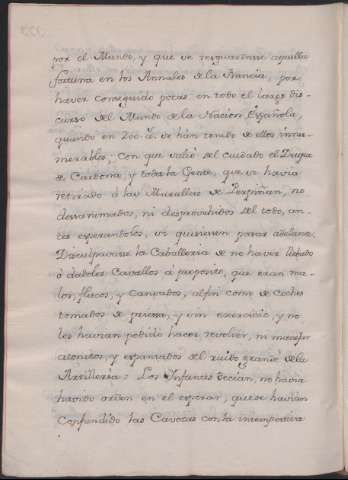 por el Mundo, y que se resguardase aquella
fortuna en los Annales de la Francia, por
haver conseguido pocas en todo el largo dis-
curso del Mundo de la Nacion Española,
quando en 200 a.s han tenido de ellos innu-
merables; con que salió del cuidado el Duque
de Cardona, y toda la Gente, que se havia
retirado á las Murallas de Perpiñan, no
desanimados, ni desprovehidos del todo, an-
tes esperandolos, si quisiesen pasar adelante.
Disculpavase la Caballeria de no haver
ó dadoles Cavallos á proposito, que eran ma-
los, flacos, y cansados, al fin como de coches
tomados de pereza, y sin exercicio, y no
les havian podido hacer revolver, ni manejar
atonitos, y espantados del ruido grande de la
Artilleria: Los Infantes decian, no havia
havido orden en el esperar, que se havian
Confundido las Cavezas con la intempestiva